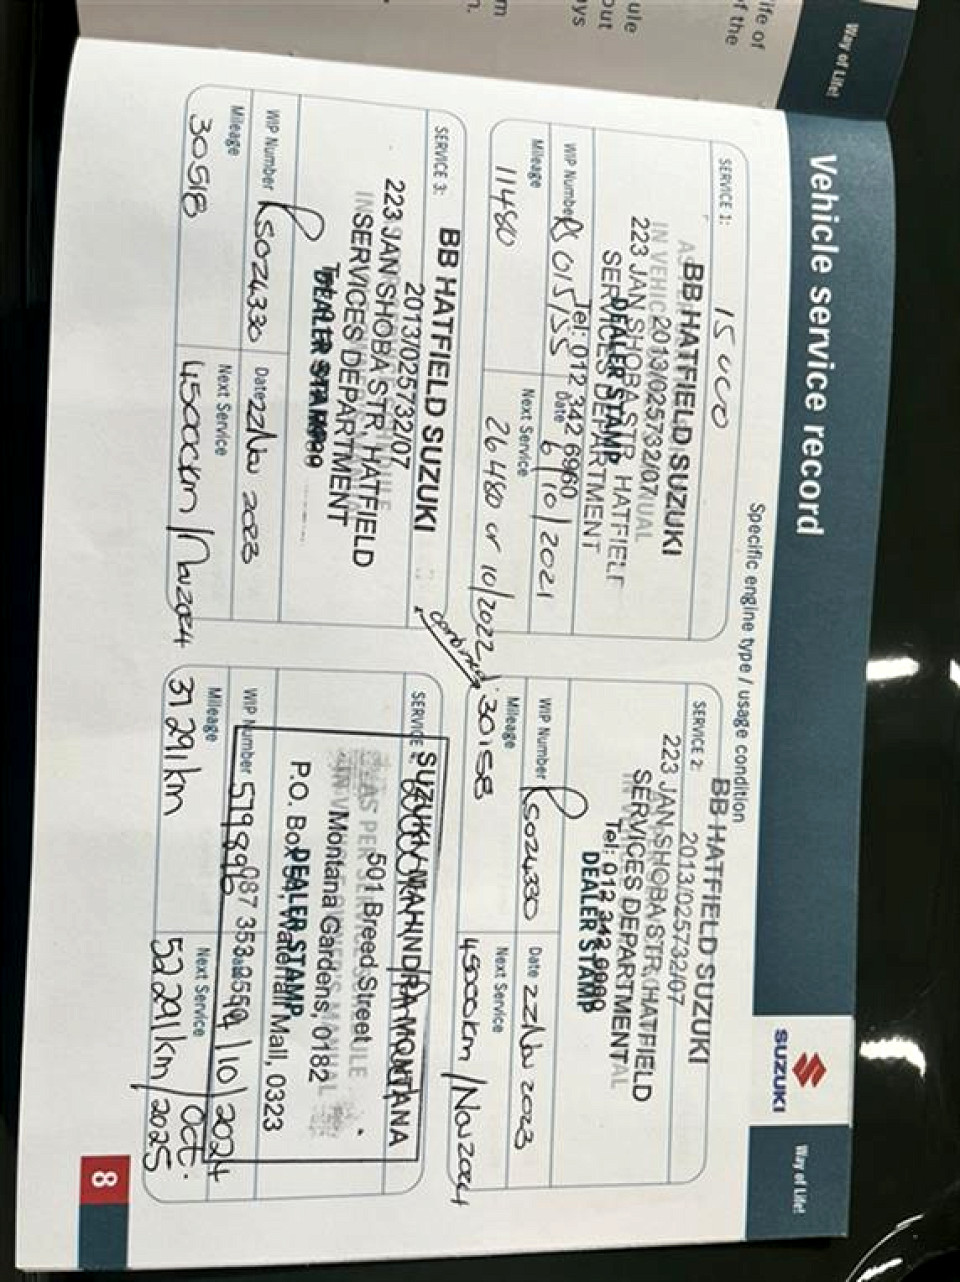 ife of
f the
ule
out
ys
m
n.
Way of Life!
Vehicle service record
SUZUKI
Way of Life!
Specific engine type / usage condition
SERVICE 1: 15000
BB HATFIELD SUZUKI
2013/025732/07
223 JAN SHOBA STR HATFIELD
SERVICES DEPARTMENT
DEALER STAMP
Tel: 012 342 6960
WIP Number RS015155 Date 6/10/2021
Mileage Next Service
11480 26480 or 10/2022
SERVICE 2:
BB HATFIELD SUZUKI
2013/025732/07
223 JAN SHOBA STR HATFIELD
SERVICES DEPARTMENT
Tel: 012 342
DEALER STAMP
WIP Number RS024330 Date 22 Nov 2023
Mileage Next Service
30158 45000km / Nov 2024
combined
SERVICE 3:
BB HATFIELD SUZUKI
2013/025732/07
223 JAN SHOBA STR HATFIELD
SERVICES DEPARTMENT
DEALER STAMP
WIP Number RS024330 Date 22 Nov 2023
Mileage Next Service
30518 45000km / Nov 2024
SERVICE
SUZUKI MAHINDRA MONTANA
501 Breed Street
Montana Gardens, 0182
DEALER STAMP
P.O. Box Waterfall Mall, 0323
WIP Number 519896 087 353 0550 /10/2024
Mileage Next Service
37291km 52291km / Oct. 2025
8